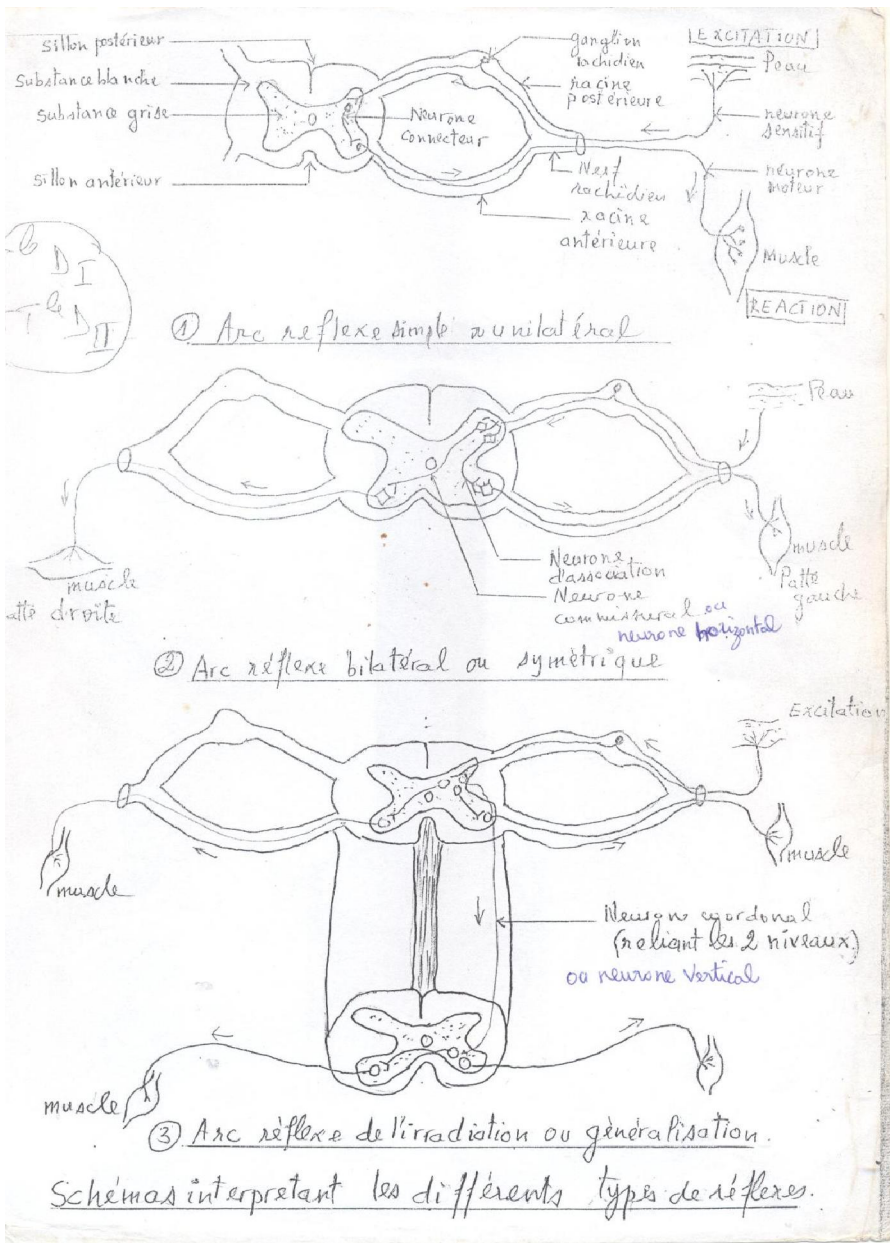 Sillon postérieur
Substance blanche
Substance grise
Sillon antérieur
Neurone
connecteur
ganglion
rachidien
racine
postérieure
EXCITATION
Peau
neurone
sensitif
Nerf
rachidien
racine
antérieure
neurone
moteur
Muscle
REACTION
le
D I
le
D II
① Arc reflexe simple ou unilatéral
Peau
muscle
Patte
gauche
muscle
atte droite
Neurone
d'association
Neurone
commissural ou
neurone horizontal
② Arc réflexe bilatéral ou symétrique
Excitation
muscle
muscle
Neurone cordonal
(reliant les 2 niveaux)
ou neurone vertical
muscle
③ Arc réflexe de l'irradiation ou généralisation.
Schémas interpretant les différents types de réflexes.